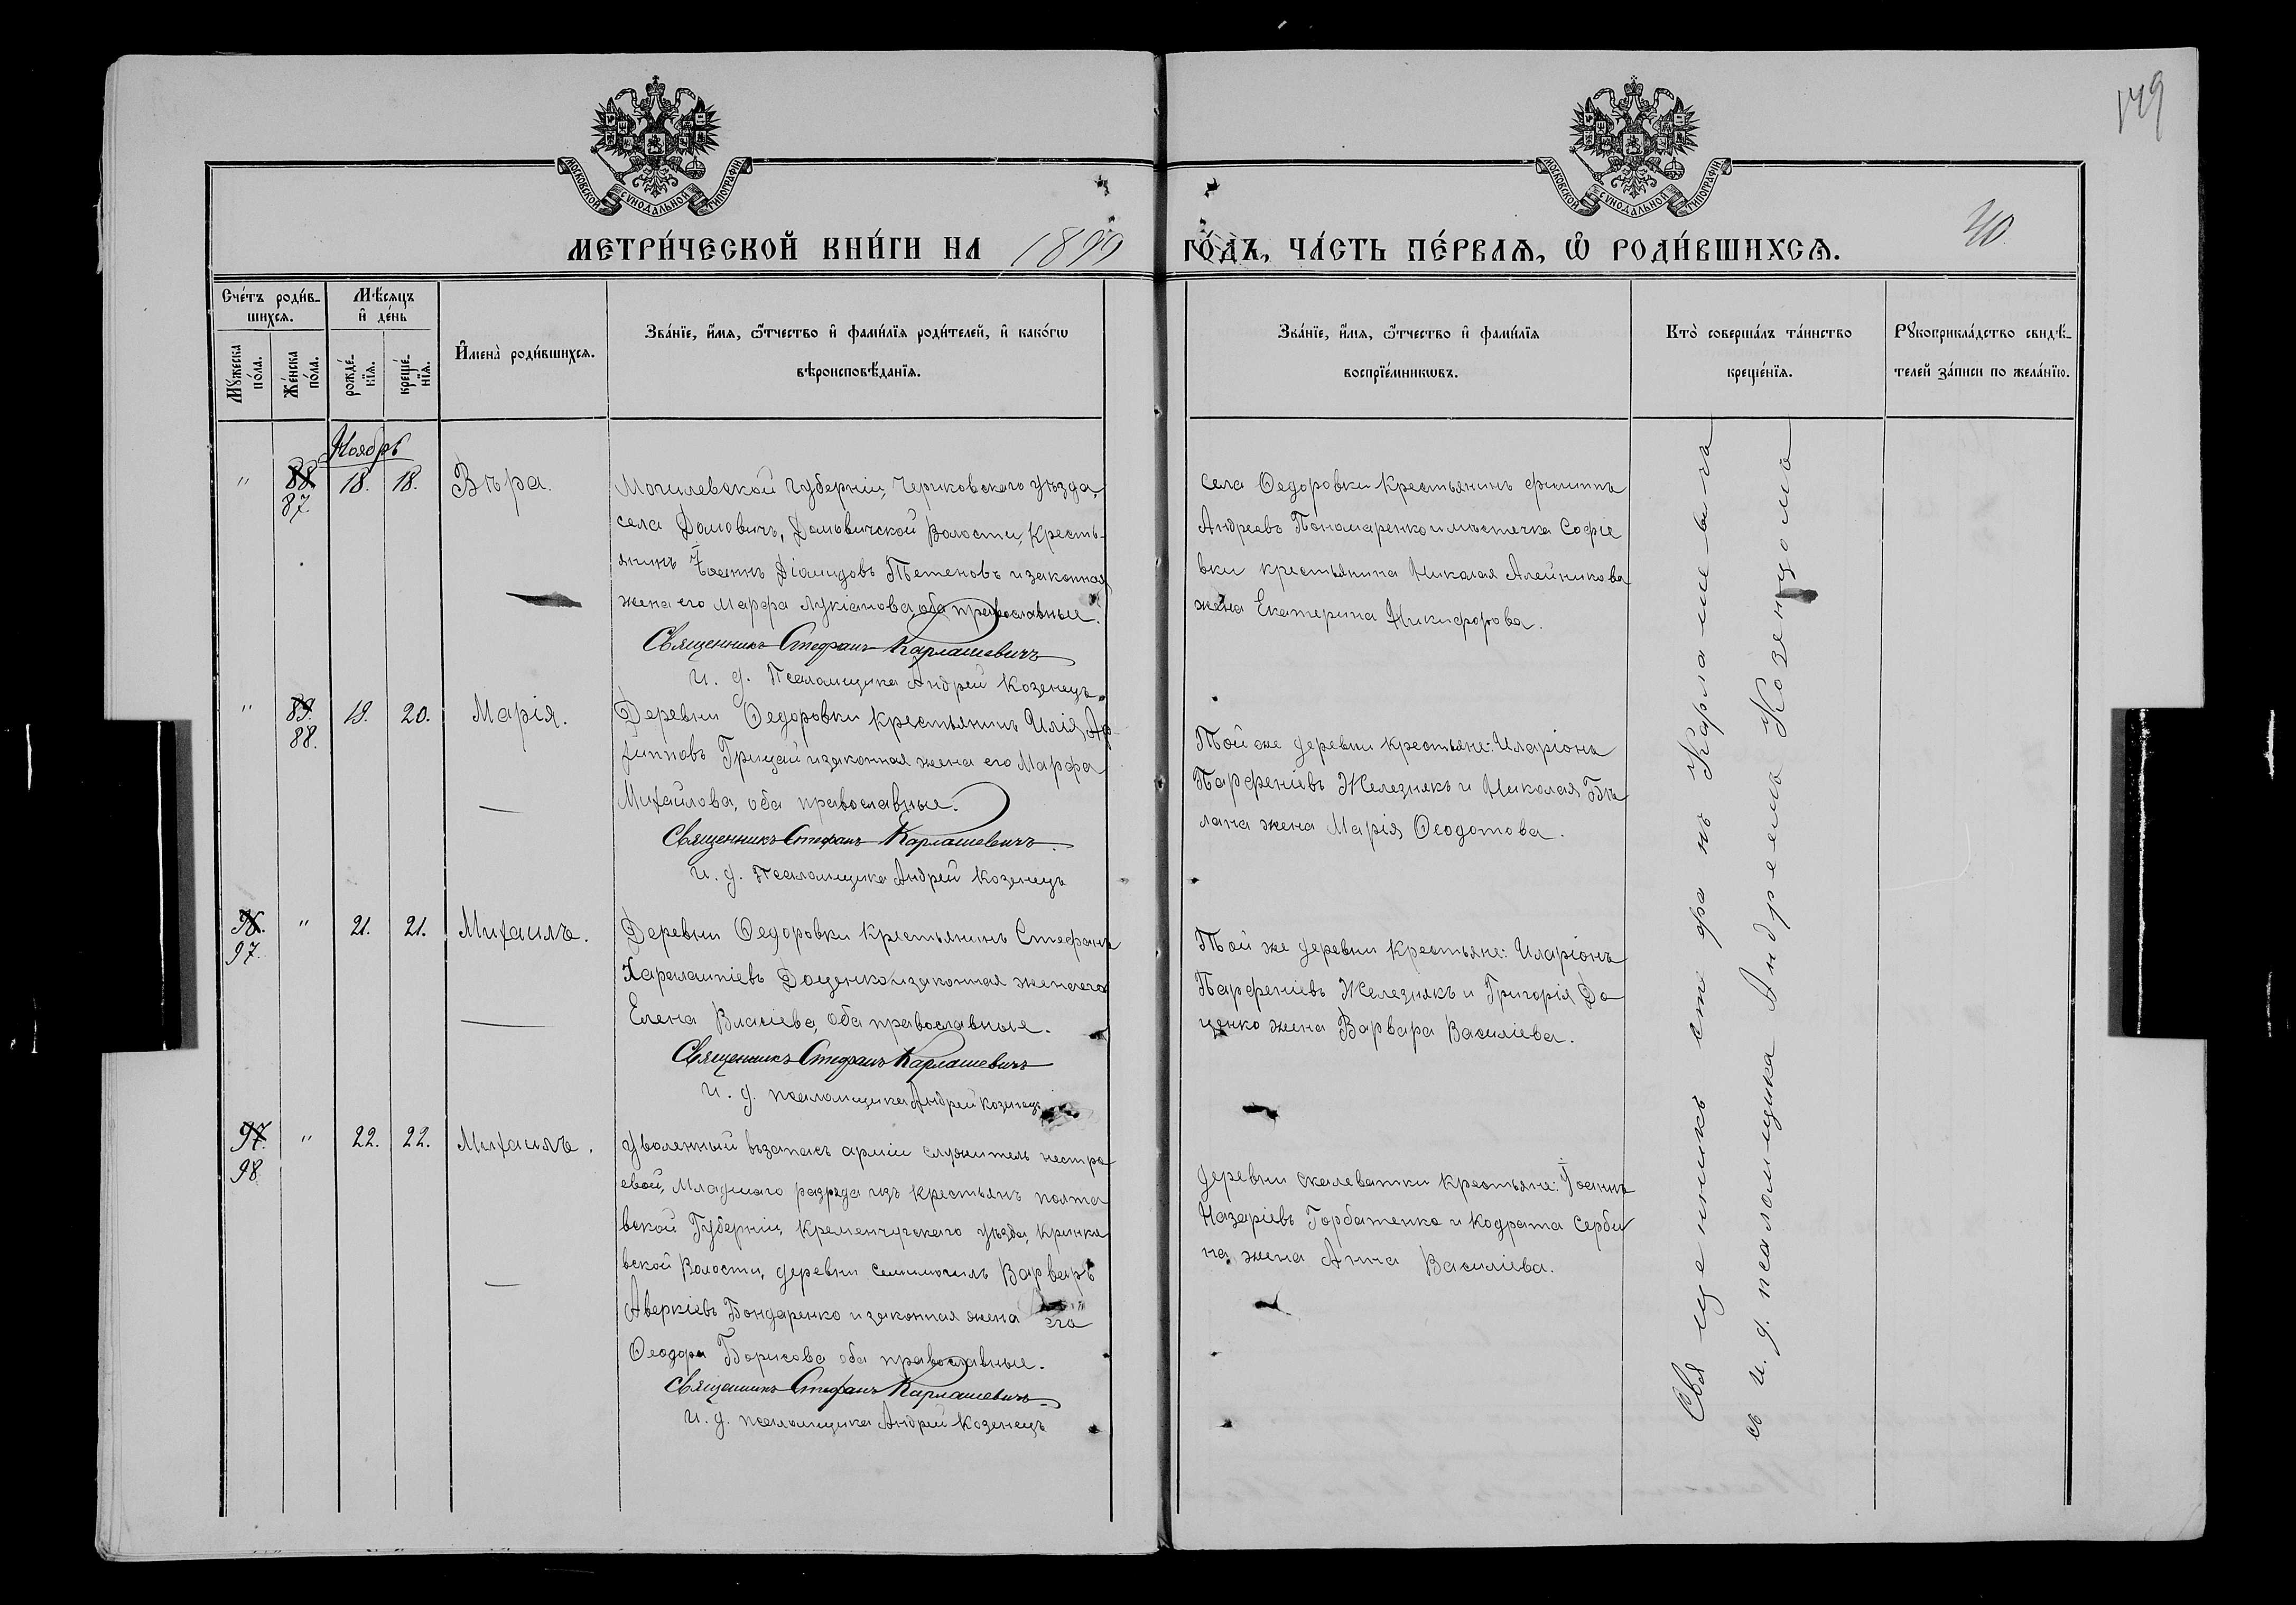 149
МОСКОВСКОЙ СѴНОДАЛЬНОЙ ТИПОГРАФІИ
МОСКОВСКОЙ СѴНОДАЛЬНОЙ ТИПОГРАФІИ
МЕТРИ́ЧЕСКОЙ КНИ́ГИ НА 1899 ГО́ДЪ, ЧА́СТЬ ПЕ́РВАѦ, Ѡ҆ РОДИ́ВШИХСѦ. 40.
Сче́тъ роди́в-
шихсѧ.
Мѣ́сѧцъ
и҆ де́нь
Мꙋ́жеска
по́ла.
Же́нска
по́ла.
рожде́-
нїѧ.
креще́-
нїѧ.
И҆мена̀ роди́вшихсѧ.
Зва́нїе, и҆́мѧ, ѻ҆́тчество и҆ фами́лїѧ роди́телей, и҆ како́гѡ
вѣроисповѣ́данїѧ.
Зва́нїе, и҆́мѧ, ѻ҆́тчество и҆ фами́лїѧ
воспрїе́мникѡвъ.
Кто̀ соверша́лъ та́инство
креще́нїѧ.
Рꙋкоприкла́дство свидѣ́-
телей за́писи по жела́нїю.
Ноябрь
" 88. 87. 18. 18. Вѣра.
Могилевской губерніи, Чериковскаго уѣзда,
села Домовичъ, Домовичской Волости, Кресть-
янинъ Іоаннъ Діомидовъ Петеновъ и законная
жена его Марфа Лукіанова, оба православные.
Священникъ Стефанъ Карлашевичъ
И. д. Псаломщика Андрей Козенецъ
села Ѳедоровки Крестьянинъ Филиппъ
Андреевъ Пономаренко и мѣстечка Софіе
вки крестьянина Николая Алейникова
жена Екатерина Никифорова.
" 89. 88. 19. 20. Марія.
Деревни Ѳедоровки Крестьянинъ Илія Ар-
хипповъ Грицай и законная жена его Марфа
Михайлова, оба православные.
Священникъ Стефанъ Карлашевичъ.
И. д. Псаломщика Андрей Козенецъ
Той же деревни крестьяне: Иларіонъ
Парфеніевъ Железнякъ и Николая Бѣ
лана жена Марія Ѳеодотова.
96. 97. " 21. 21. Михаилъ.
Деревни Ѳедоровки Крестьянинъ Стефанъ
Харалампіевъ Доценко и законная жена его
Елена Власіева, оба православные.
Священникъ Стефанъ Карлашевичъ
И. д. псаломщика Андрей Козенецъ
Той же деревни Крестьяне: Иларіонъ
Парфеніевъ Железнякъ и Григорія До
ценко жена Варвара Василіева.
97. 98. " 22. 22. Михаилъ.
Уволенный възапасъ арміи служитель нестро
евой, Младшаго разряда изъ крестьянъ полта
вской Губерніи, Кременчугскаго уѣзда, Кринка
вской Волости, деревни Семимогилъ Варваръ
Аверкіевъ Бондаренко и законная жена его
Ѳеодора Борисова оба православные.
Священникъ Стефанъ Карлашевичъ
И. д. псаломщика Андрей Козенецъ
деревни Скалеватки крестьяне: Іоаннъ
Назаріевъ Горбатенко и Кодрата Серби
на, жена Анна Василіева.
Священникъ Стефанъ Карлашевичъ
съ и. д. псаломщика Андреемъ Козенцомъ